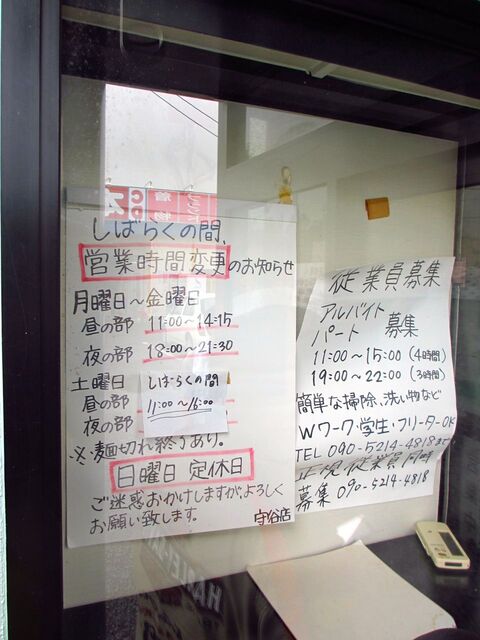 しばらくの間、
営業時間変更のお知らせ
月曜日～金曜日
昼の部 11:00～14:15
夜の部 18:00～21:30
土曜日 しばらくの間
昼の部 11:00～16:00
夜の部
※麺切れ終了あり。
日曜日 定休日
ご迷惑おかけしますがよろしく
お願い致します。 守谷店
従業員募集
アルバイト
パート 募集
11:00～15:00 (4時間)
19:00～22:00 (3時間)
簡単な掃除、洗い物など
Wワーク・学生・フリーターOK
TEL 090-5214-4818まで
正規従業員同時
募集 090-5214-4818